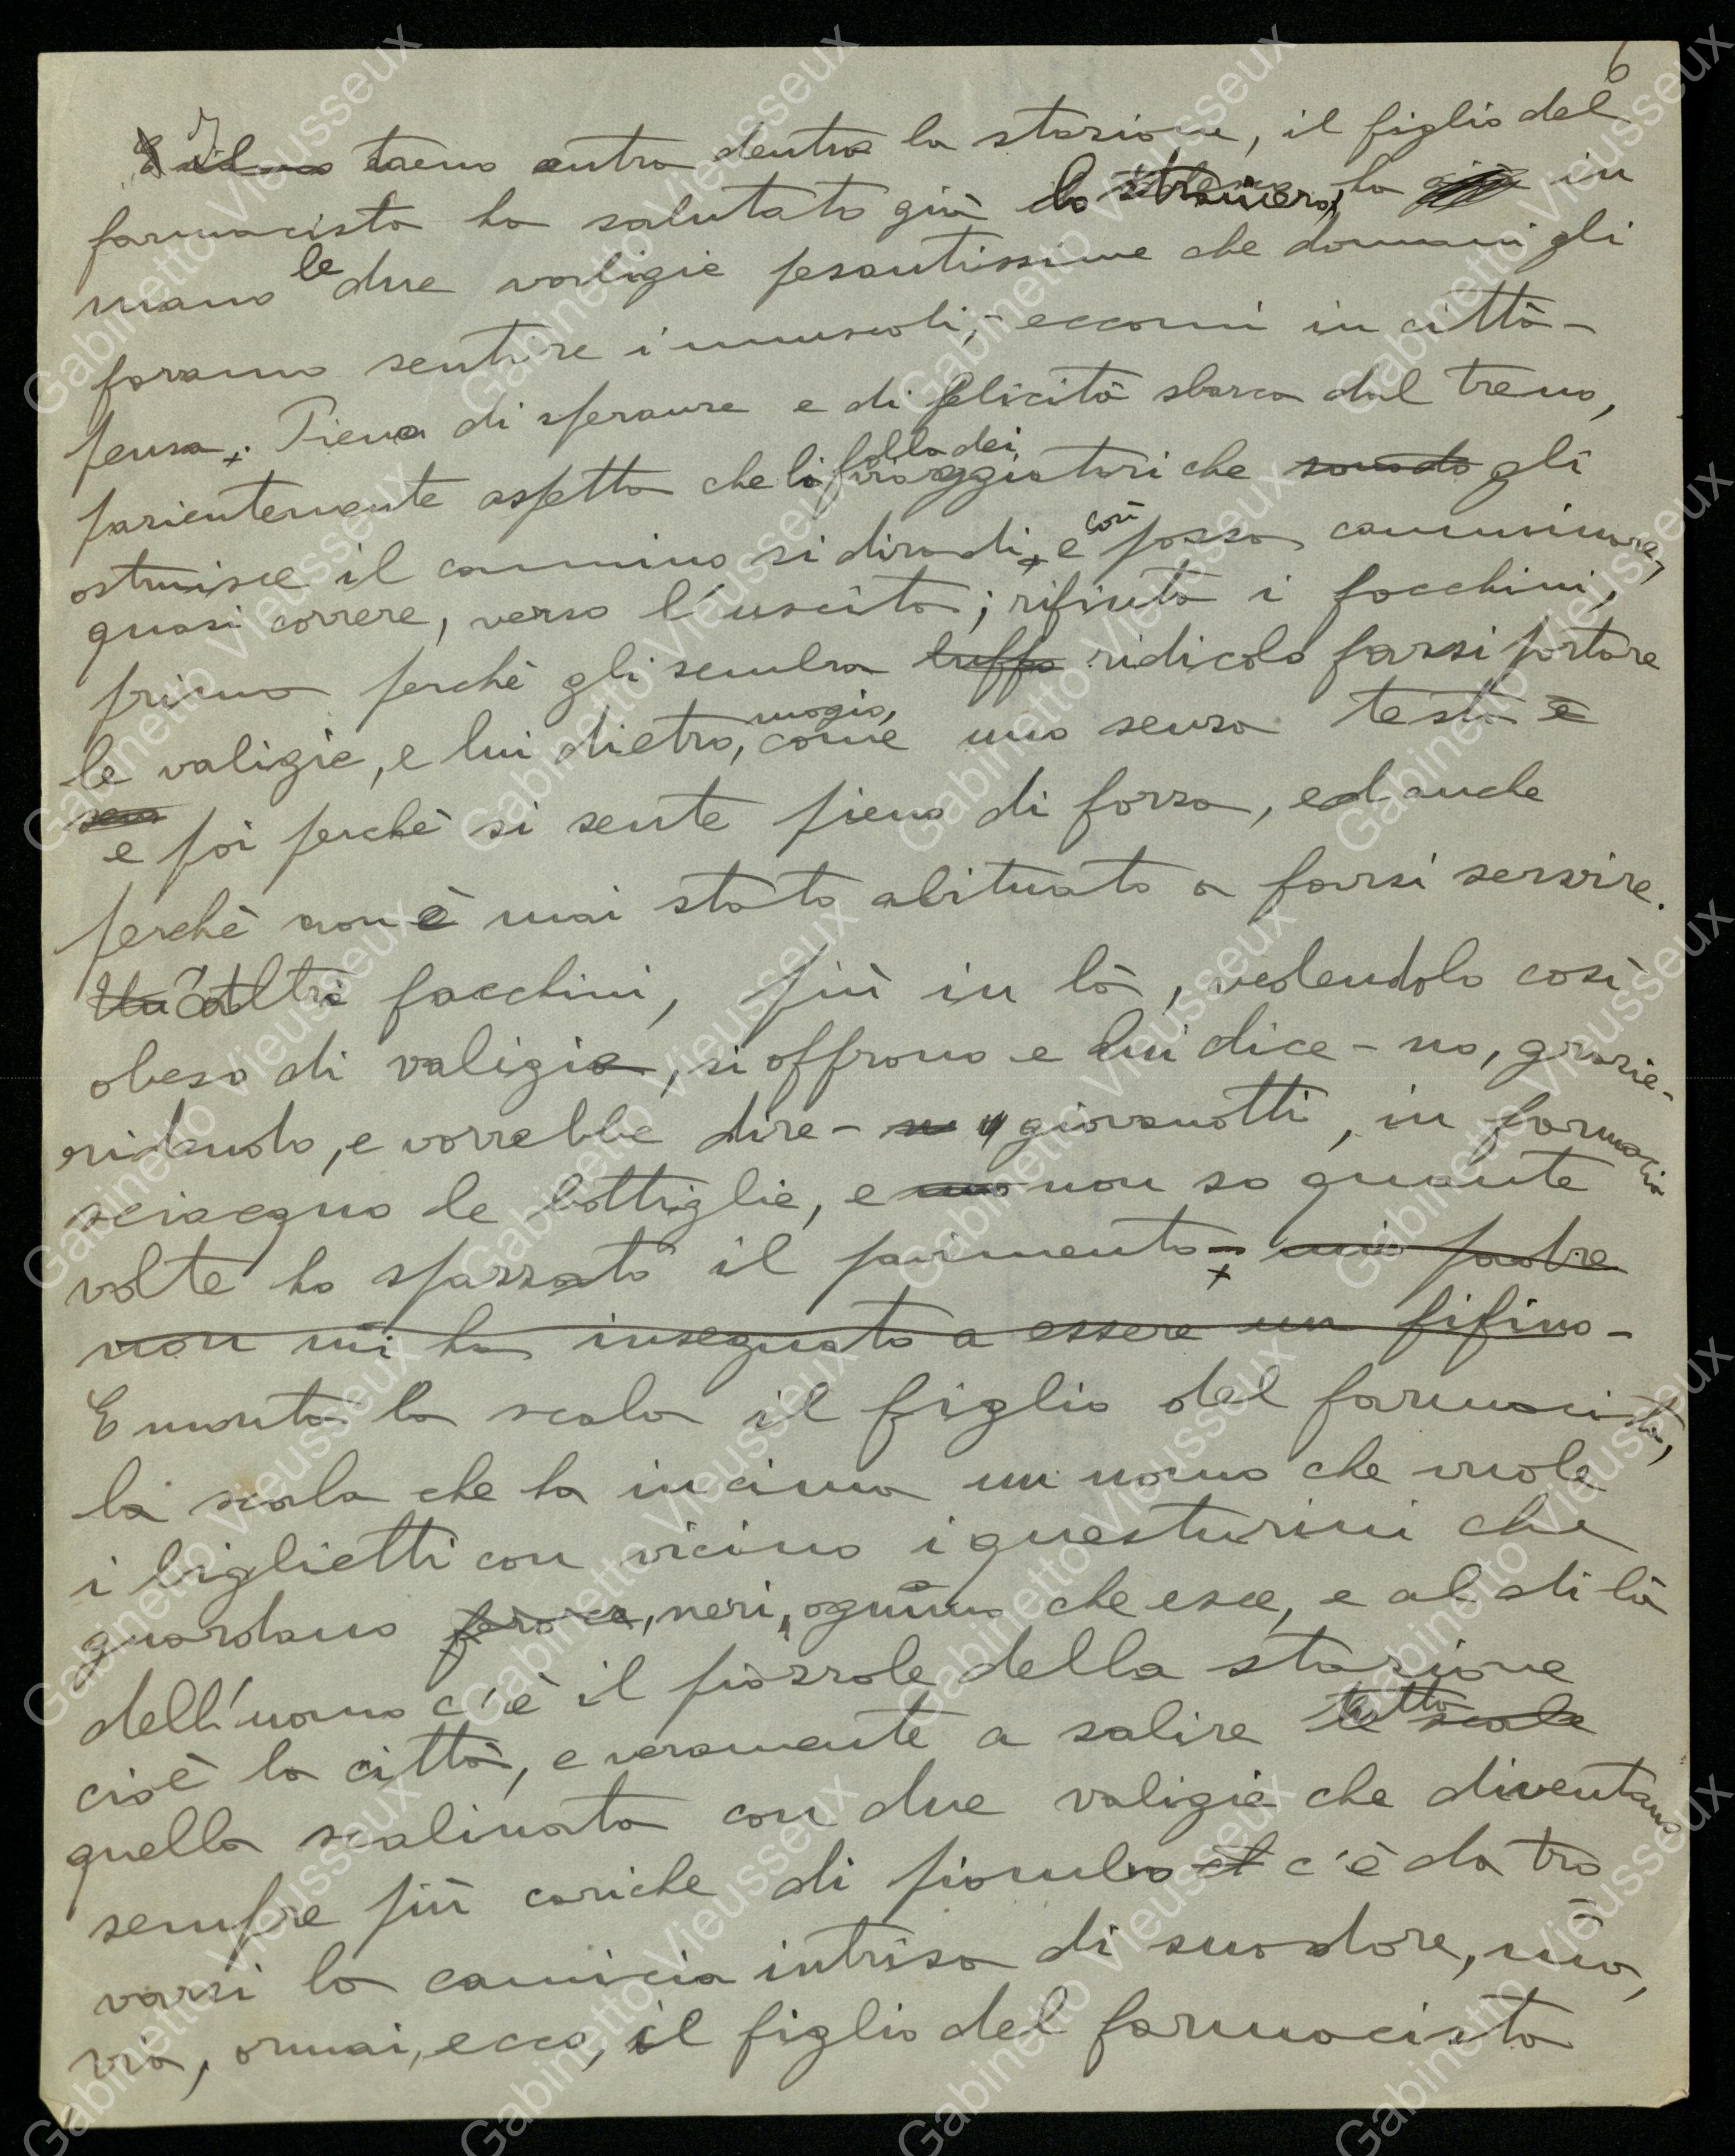 6
Il treno entra dentro la stazione, il figlio del
farmacista ha salutato già lo straniero, ha in
mano le due valigie pesantissime che domani gli
faranno sentire i muscoli, - eccomi in città -
pensa. Pieno di speranze e di felicità sbarca dal treno,
pazientemente aspetta che la folla dei viaggiatori che gli
ostruisce il cammino si diradi, e così possa camminare,
quasi correre, verso l'uscita; rifiuta i facchini,
prima perchè gli sembra buffo ridicolo farsi portare
le valigie, e lui dietro, mogio, come uno senza testa e
e poi perchè si sente pieno di forza, ed anche
perchè non è mai stato abituato a farsi servire.
Altri facchini, più in là, vedendolo così
obeso di valigie, si offrono e lui dice - no, grazie -
ridendo, e vorrebbe dire - giovanotti, in farmacia
sciacquo le bottiglie, e non so quante
volte ho spazzato il pavimento - mio padre
non mi ha insegnato a essere un fifino -
E monta la scala il figlio del farmacista,
la scala che ha in cima un uomo che vuole
i biglietti con vicino i questurini che
guardano feroce, neri, ognuno che esce, e al di là
dell'uomo c'è il piazzale della stazione
cioè la città, e veramente a salire tutta scale
quella scalinata con due valigie che diventano
sempre più cariche di piombo c'è da tro
varsi la camicia intrisa di suodore, ma,
via, ormai, ecco, il figlio del farmacista